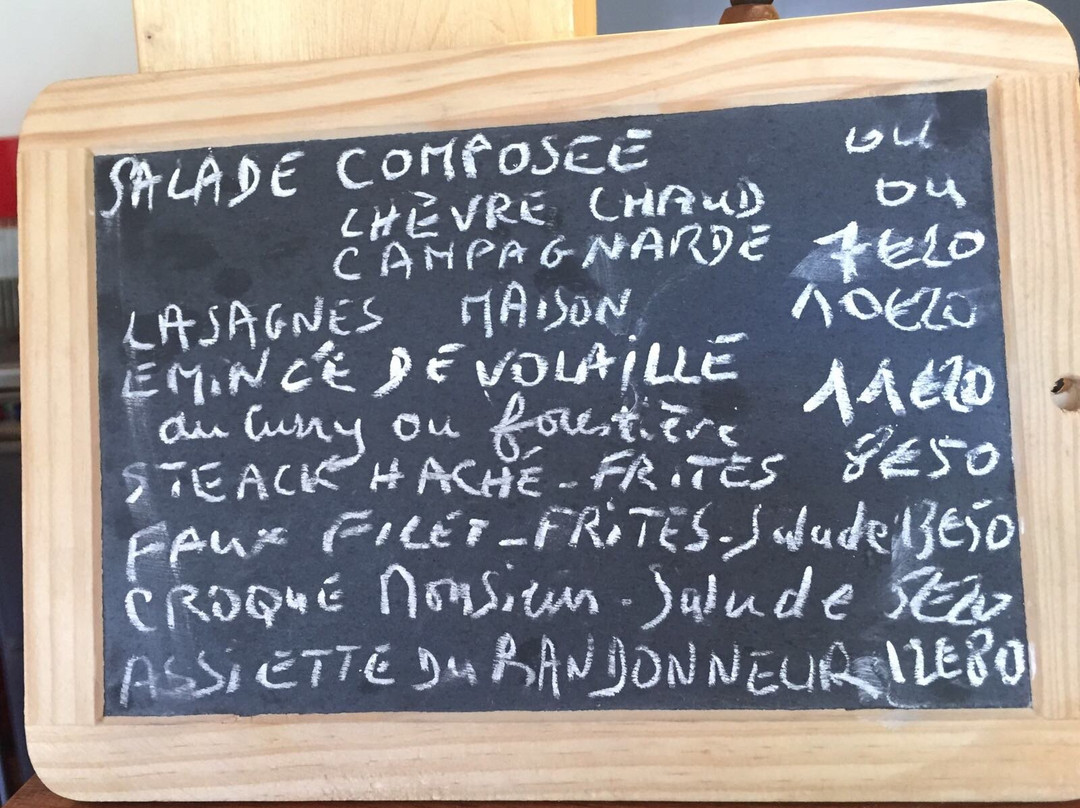 SALADE COMPOSÉE ou
CHÈVRE CHAUD ou
CAMPAGNARDE 7€20
LASAGNES MAISON 10€20
EMINCÉ DE VOLAILLE 11€20
au Curry ou forestière
STEACK HACHÉ - FRITES 8€50
FAUX FILET - FRITES - Salade 13€50
CROQUE Monsieur - Salade 5€20
ASSIETTE DU RANDONNEUR 12€80